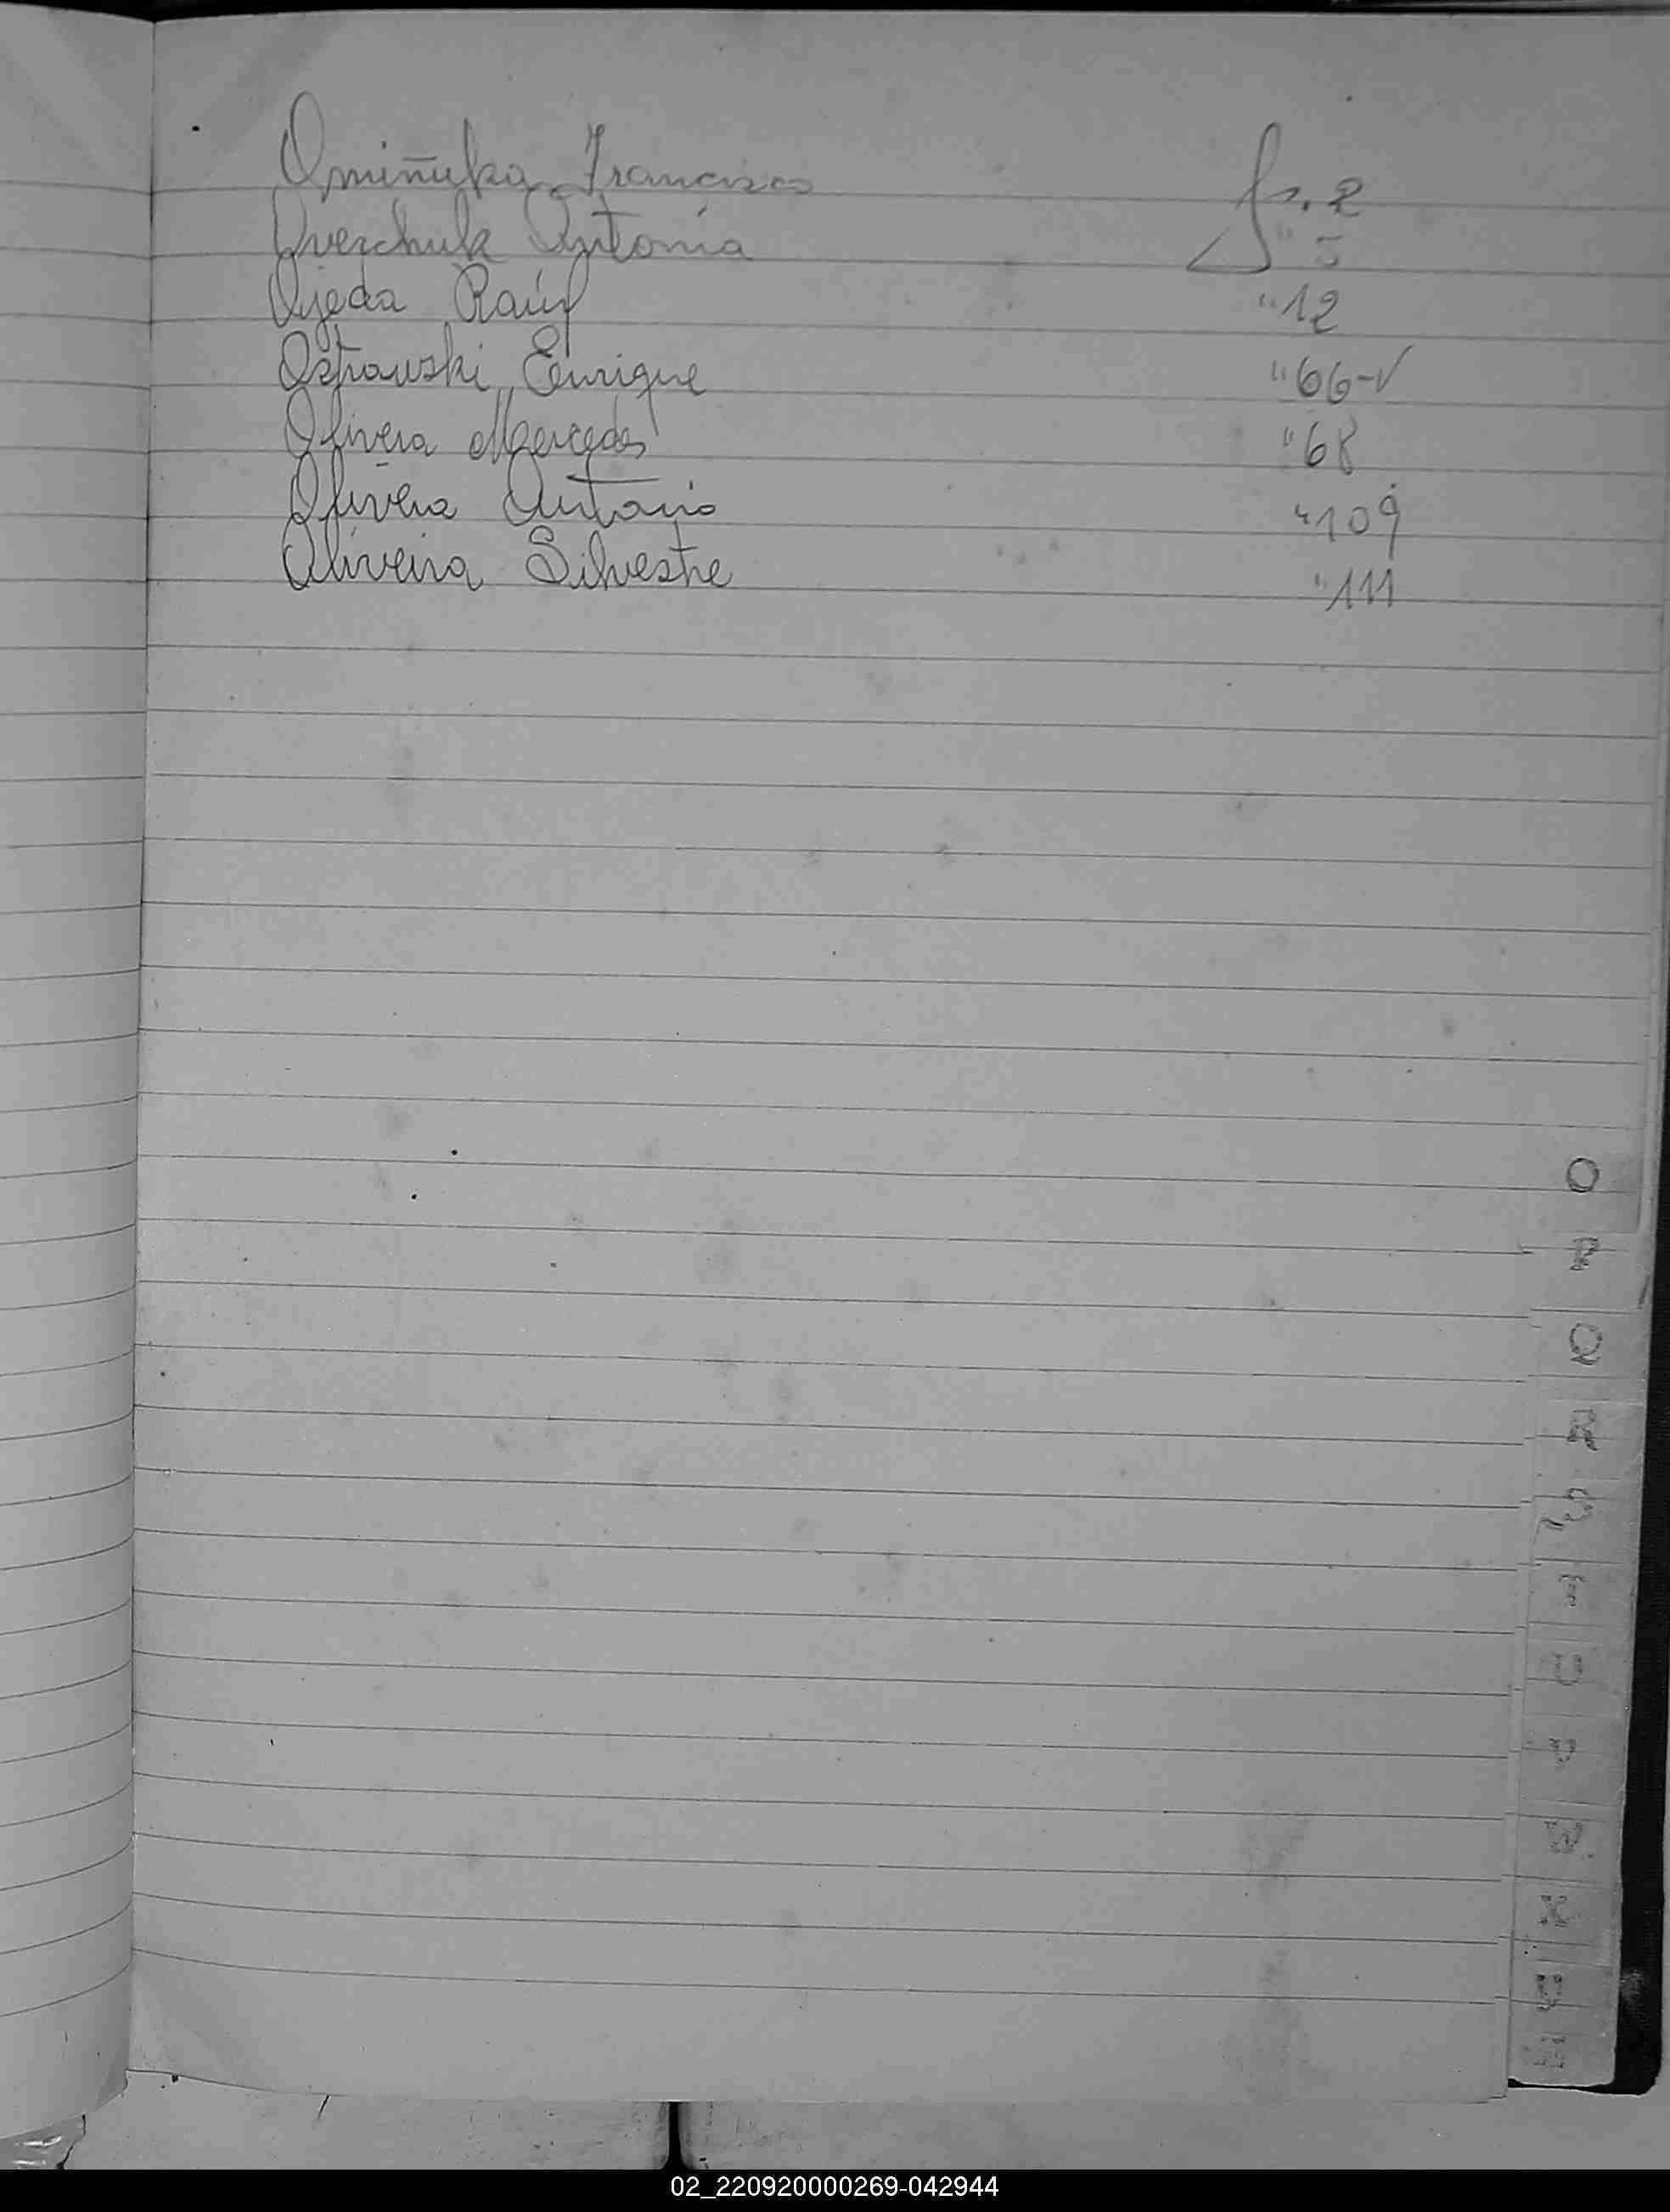 Omiñuka Francisco fs. 2
Overchuk Antonia " 5
Ojeda Raúl " 12
Ostrowski Enrique " 66-V
Olivera Mercedes " 68
Olivera Antonio " 109
Oliveira Silvestre " 111
O
P
Q
R
S
T
U
V
W
X
Y
Z
02_220920000269-042944